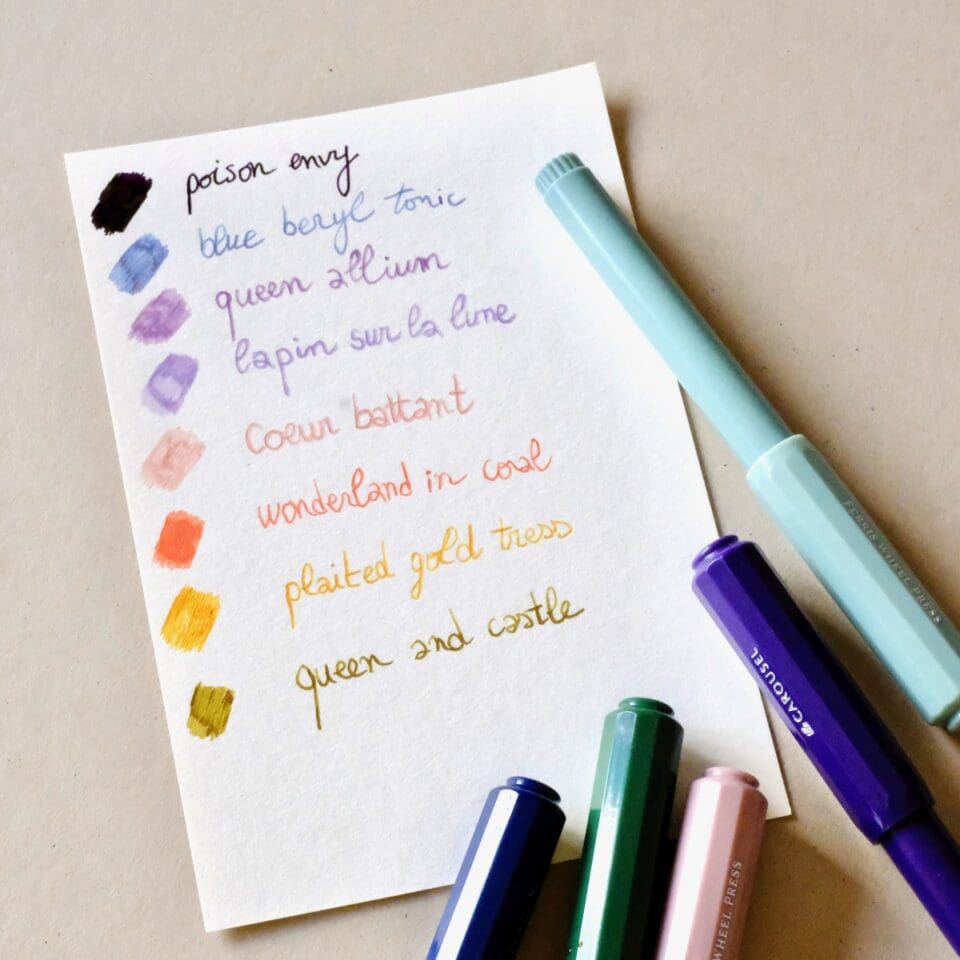 poison envy
blue beryl tonic
queen allium
lapin sur la lune
coeur battant
wonderland in coral
plaited gold tress
queen and castle
FERRIS WHEEL PRESS
CAROUSEL
WHEEL PRESS